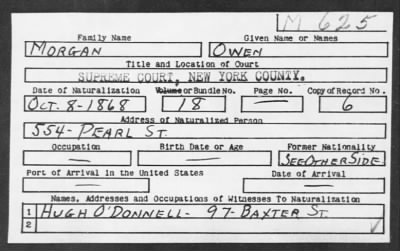 M 625
Family Name Given Name or Names
MORGAN OWEN
Title and Location of Court
SUPREME COURT, NEW YORK COUNTY.
Date of Naturalization Volume or Bundle No. Page No. Copy of Record No.
OCT. 8-1868 18 — 6
Address of Naturalized Person
554-PEARL ST.
Occupation Birth Date or Age Former Nationality
— — SEE OTHER SIDE
Port of Arrival in the United States Date of Arrival
— —
Names, Addresses and Occupations of Witnesses To Naturalization
1 HUGH O'DONNELL- 97-BAXTER ST.
2